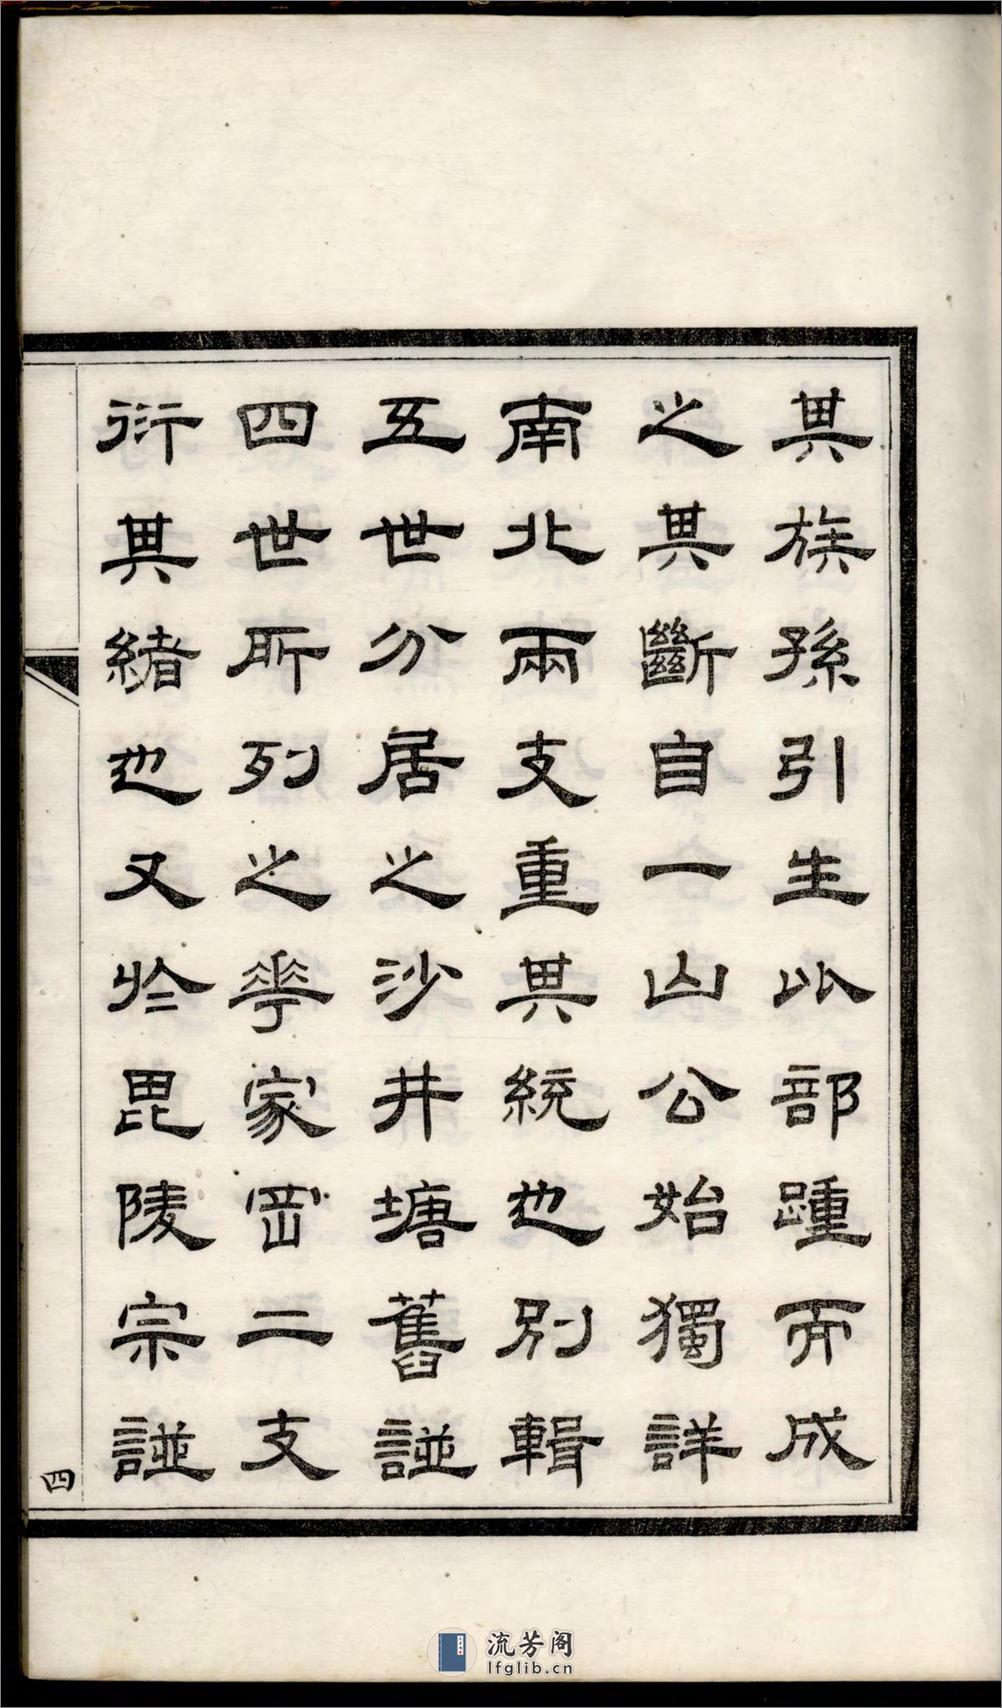 其族孫引生比部踵而成
之其斷自一山公始獨詳
南北兩支重其統也別輯
五世分居之沙井塘舊譜
四世所列之華家岡二支
衍其緒也又於毘陵宗譜
四
流芳阁
lfglib.cn